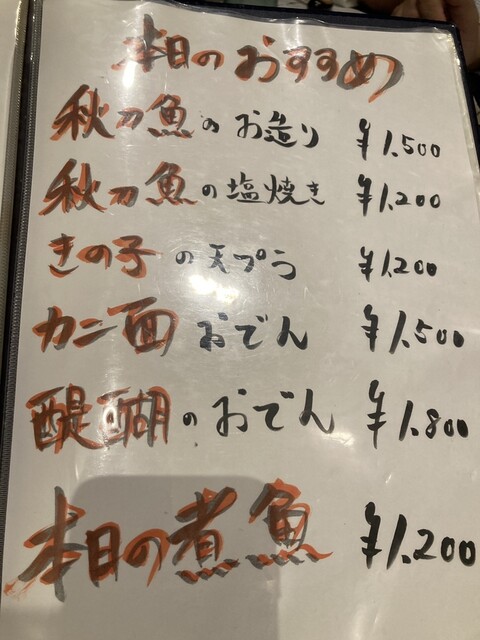 本日のおすすめ
秋刀魚のお造り ¥1,500
秋刀魚の塩焼き ¥1,200
きの子の天プラ ¥1,200
カニ面おでん ¥1,500
醍醐のおでん ¥1,800
本日の煮魚 ¥1,200